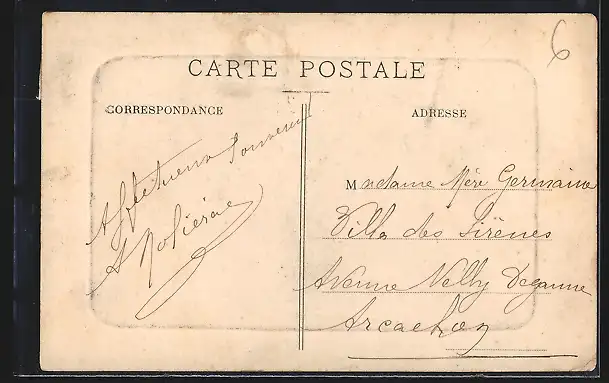 6
CARTE POSTALE
CORRESPONDANCE
Affectueux Souvenir
ADRESSE
Madame Méri Germaine
Villa des Sirènes
Avenue Nelly Deganne
Arcachon